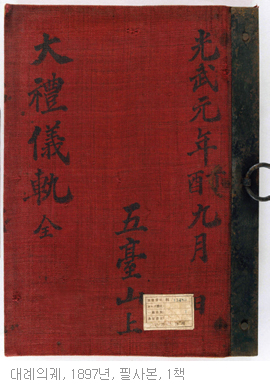 光武元年丁酉九月 日
五臺山上
大禮儀軌 全
대례의궤, 1897년, 필사본, 1책